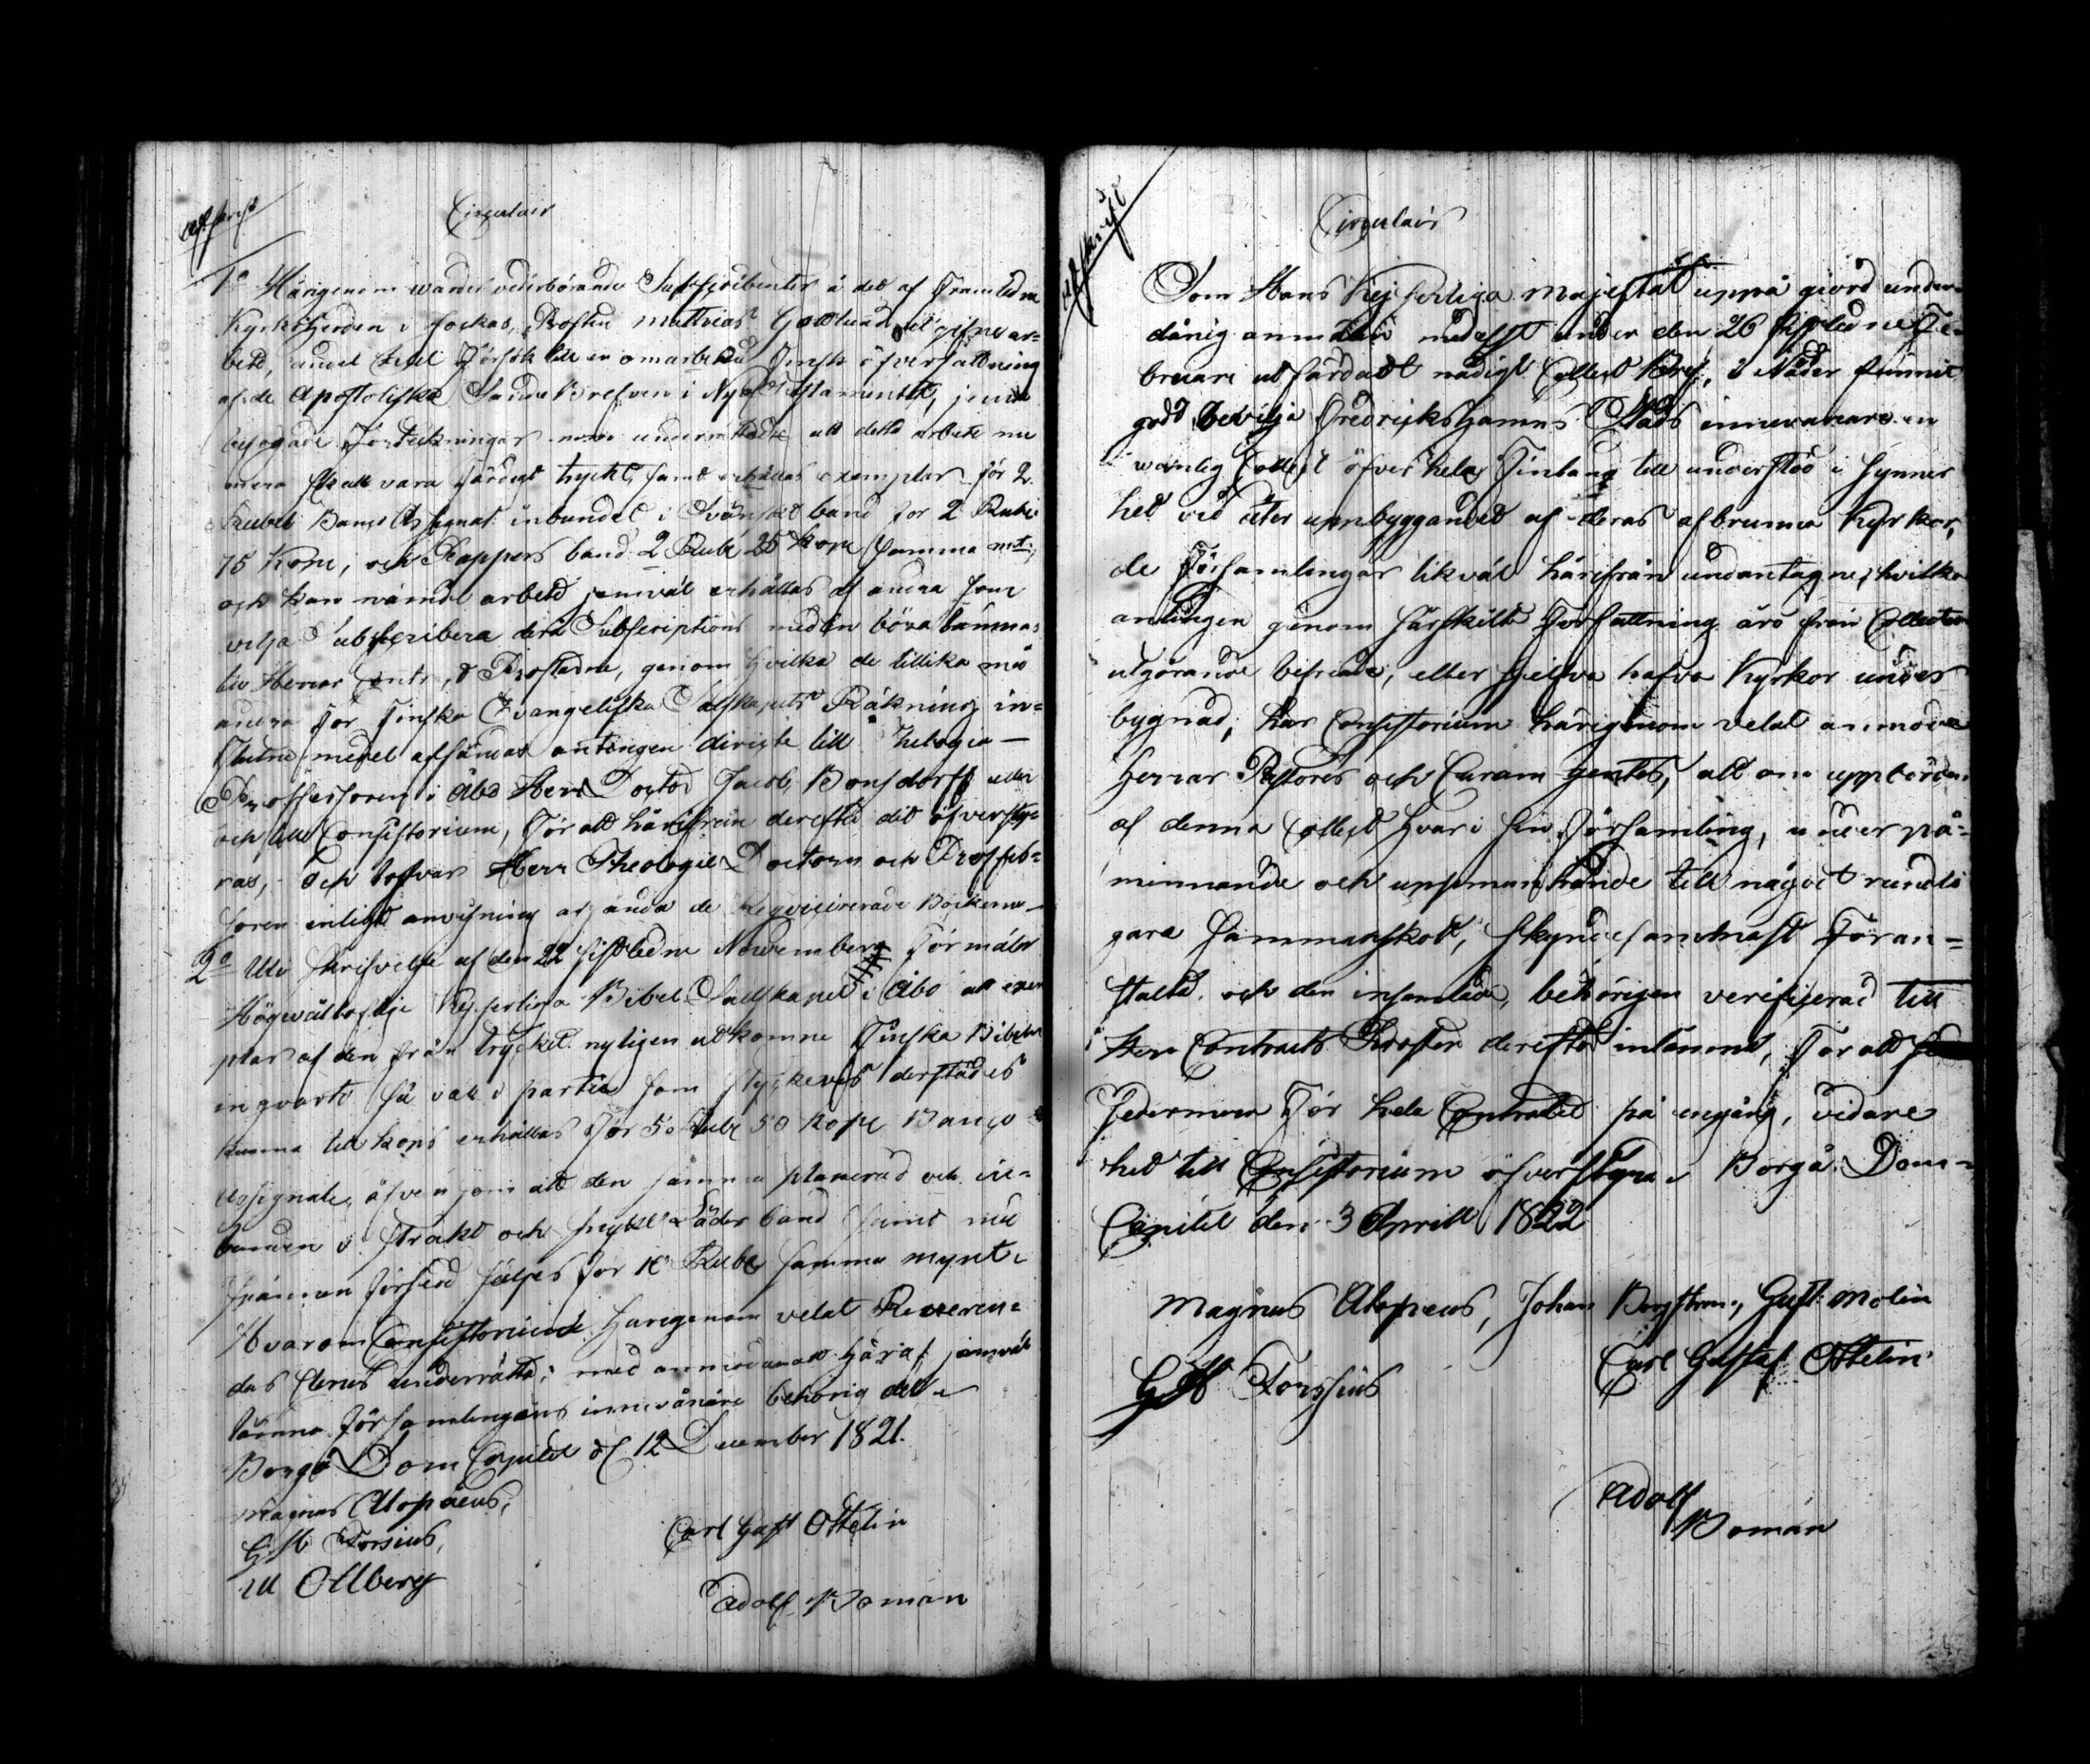 Afskrift
Circulair
1o Härigenom warder vederbörande Subscribenter å det af Framledne
KyrkoHerden i Jockas, Prosten Mathias Gottlund utgifne ar-
bete, under titel Försök till en omarbetad Finsk öfversättning
af de Apostoliska SändeBrefven i Nya Testamentet, jemte
befogade Förteckningar underrättade att detta arbete nu
mera skall vara färdigt tryckt, samt erhållas exemplar för 2
Rubel Banco Assignat. inbundet i Svänskt band för 2 Rube
75 Kope, och Pappers band 2 Rube 25 Kope samma mt;
och kan nämde arbete jemväl erhållas af andra som
vilja Subscribera derå Subscriptions medlen böra lämnas
till Herrar Contr. Prostarne, genom hvilka de tillika med
andra för Finska Evangeliska Sälskapets Räkning in-
flutne medel afsändas antingen dirigte till Theologie
Professoren i Åbo Herr Doctor Jacob Bonsdorff eller
ock till Consistorium, för att härifrån derefter dit öfversty-
ras, och lofvar Herr Theologie Doctorn och Profes-
soren enligt anvisning afsända de Reqvirerade Böckerne
2o Uti skrifvelse af den 22 sistledne November Förmäler
Högvälloflige Kejserliga Bibel Sällskapet i Åbo att exem
plar af den från trycket nyligen utkomne Finska Bibeln
in qvarto så väl i partie som styckevis derstädes
kunna till köps erhållas för 5 Rube 50 Kope Banco
Assignate, äfven som att den samma planerad och in-
bunden i starkt och snyggt Läder band samt med
spännen försedd säljes för 10 Rube samma mynt.
Hvarom Consistorium härigenom velat Reveren-
das Clerus underrätta; med anmodan att häraf jemväl
lämna Församlingens innevånare behörig del
Borgå Dom Capitel d 12 December 1821.
Magnus Alopæus,
G M Forsius, Carl Gust Ottelin
M Ollberg
Adolf Boman
Afskrift
Circulair
Som Hans Kejserliga Majestät uppå gjord under-
dånig anmälan medelst under den 26 sistledne Fe-
bruari utfärdadt nådigt Collect Bref, i Nåder funnit
godt bevilja Fredrikshamns Stads innevånare en
wanlig Collect öfver hela Finland till understöd i synner
het vid åter uppbyggandet af deras afbrunna Kyrkor,
de Församlingar likväl härifrån undantagne, hvilka
antingen genom särskilt Författning äro från Collecters
utgörande befriade, eller sjelfva hafva Kyrkor under
bygnad; har Consistorium härigenom velat anmoda
Herrar Pastores och Curam gentes, att om uppbörden
af denna Collect hvar i sin Församling, under på-
minnande och uppmuntrande till något rundeli
gare sammanskott, skyndesammast Föran-
stalta och den insamlade, behörigen verificerad till
Herr Contracts Prosten derefter inlämna, för att
Sedermera för hela Contractet på engång, vidare
hit till Consistorium öfverstyras Borgå Dom-
Capitel den 3 Aprill 1822
Magnus Alopæus, Johan Borgström, Gust. Molin
G M Forssius Carl Gustaf Ottelin
Adolf
Boman